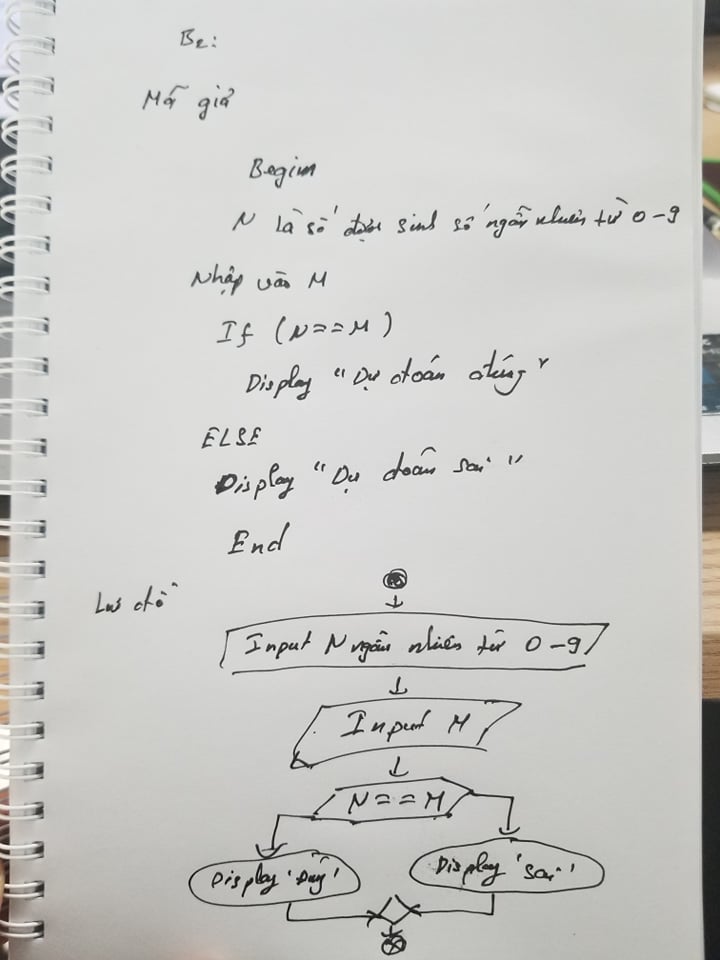 B2:
Mã giả
Begin
N là số được sinh số ngẫu nhiên từ 0-9
Nhập vào M
If (N==M)
Display "Dự đoán đúng"
ELSE
Display "Dự đoán sai"
End
Lưu đồ
Input N ngẫu nhiên từ 0-9
Input M
N==M
Display 'Đúng'
Display 'sai'